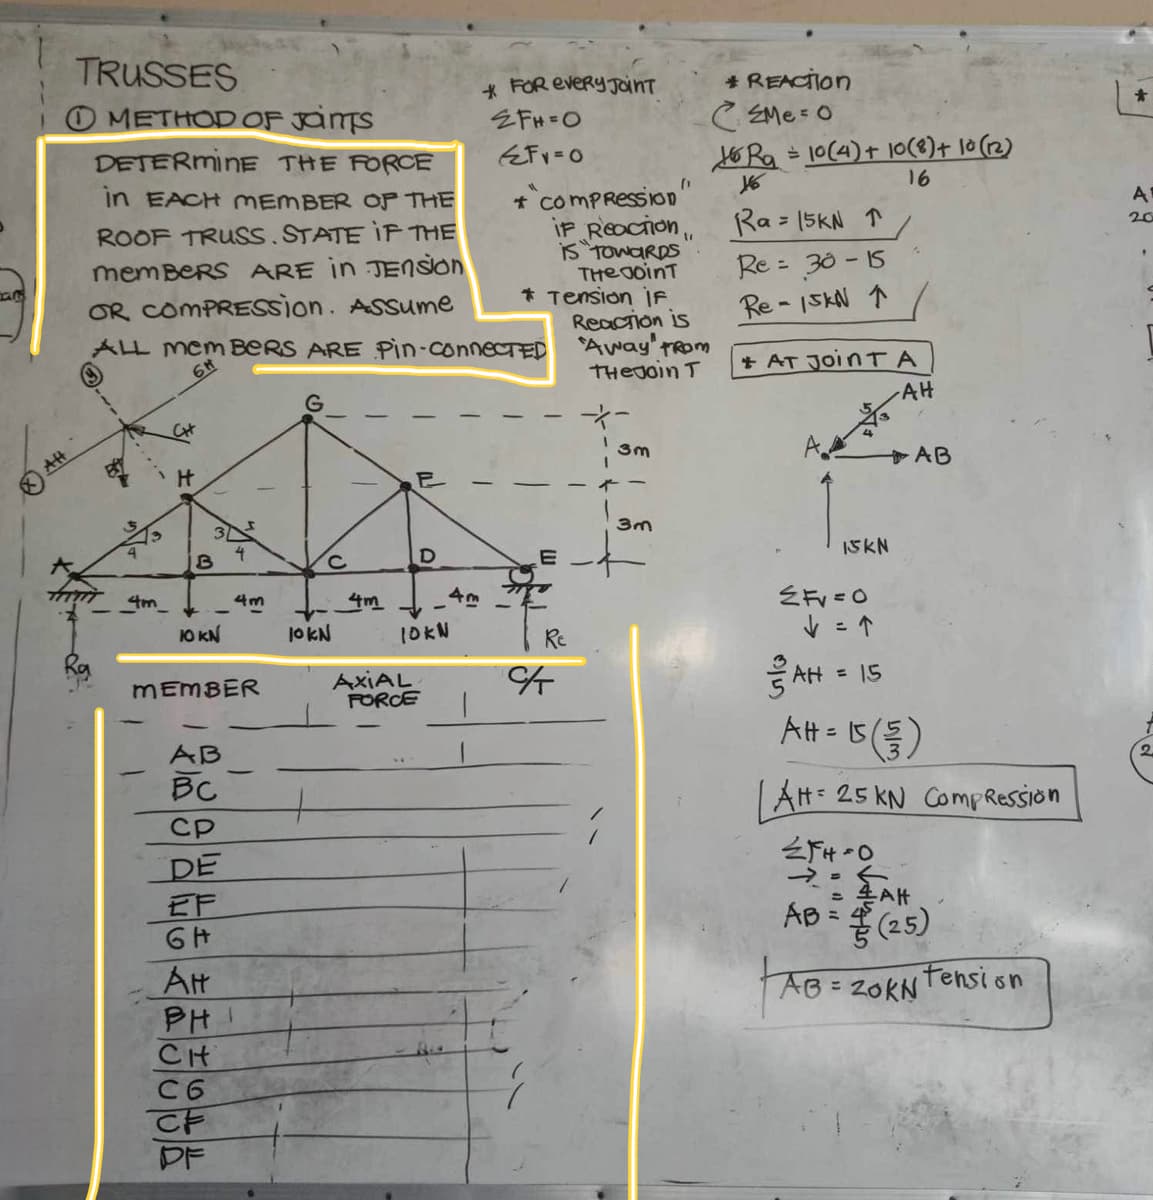 TRUSSES
① METHOD OF JOINTS
DETERMINE THE FORCE
in EACH MEMBER OF THE
ROOF TRUSS. STATE IF THE
MEMBERS ARE in TENSION
OR COMPRESSION. ASSUME
ALL MEMBERS ARE Pin-CONNECTED
* FOR EVERY JOINT
ΣFH=0
ΣFV=0
* "COMPRESSION"
IF REACTION
IS "TOWARDS"
THE JOINT
* TENSION IF
REACTION IS
"AWAY" FROM
THE JOINT
* REACTION
ΣMe=0
16Ra = 10(4)+10(8)+10(12)
16 16
Ra = 15KN ↑
Re = 30-15
Re = 15KN ↑
* AT JOINT A
AH
5 3
4
A
AB
15KN
ΣFV=0
↓ = ↑
3/5 AH = 15
AH = 15(5/3)
AH = 25KN COMPRESSION
ΣFH=0
→ = ←
= 4/5 AH
AB = 4/5 (25)
AB = 20KN Tension
y
GH
CH
BH
x AH
G
3m
H
F
3m
5 3
4
3 5
4
A
B
C
D
E
4m 4m 4m 4m
10KN 10KN 10KN
Ra
Re
MEMBER AXIAL FORCE C/T
AB
BC
CD
DE
EF
GH
AH
BH
CH
CG
CF
DF
*
20
2